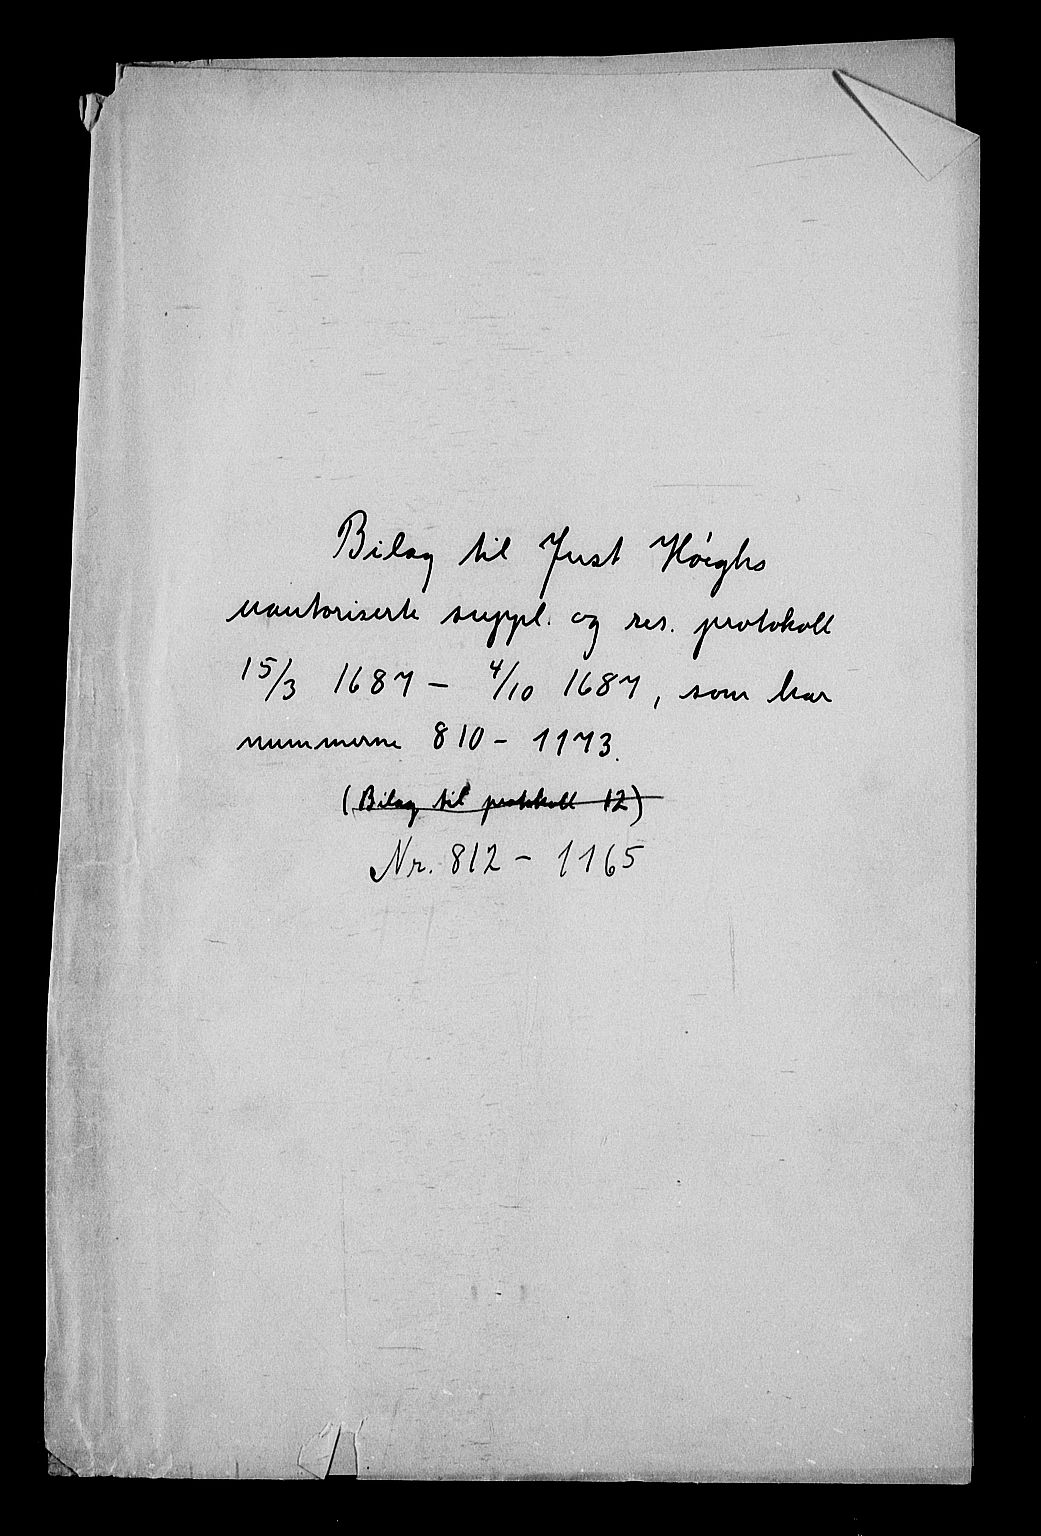 Bilag til Just Høeghs
uautoriserte suppl. og res. protokoll
15/3 1687 - 4/10 1687, som har
nummerne 810 - 1173.
(Bilag til protokoll 12)
Nr. 812 - 1165